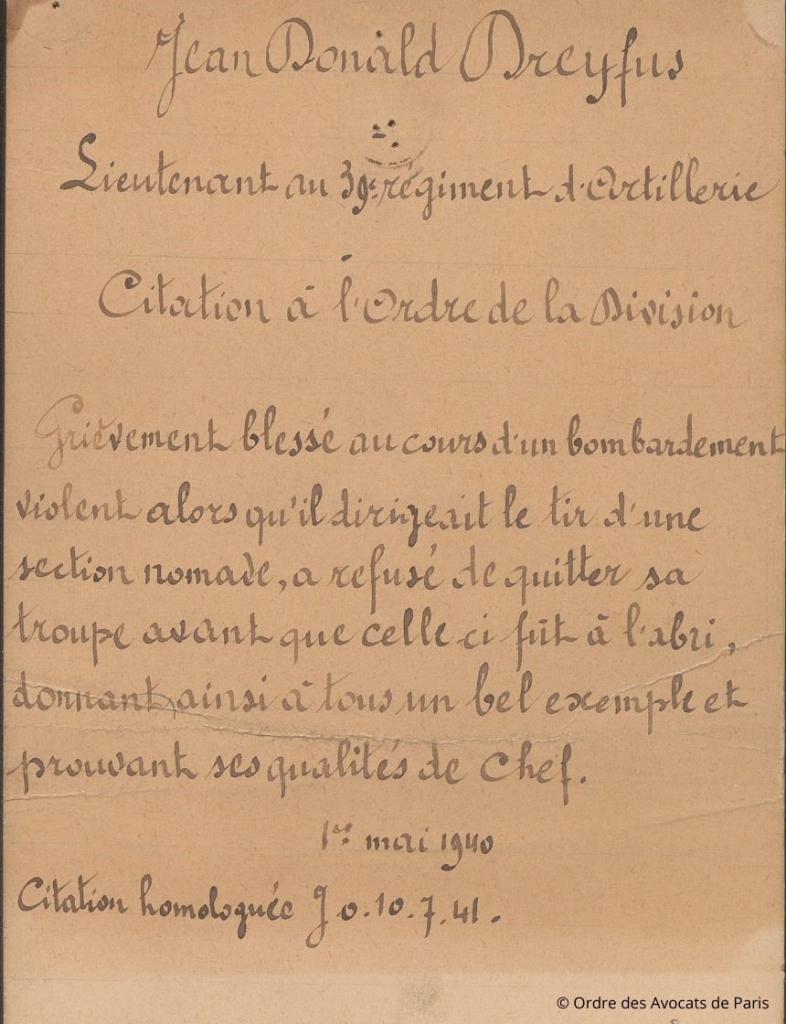 Jean Donald Dreyfus
Lieutenant au 39e régiment d'Artillerie
Citation à l'Ordre de la Division
Grièvement blessé au cours d'un bombardement
violent alors qu'il dirigeait le tir d'une
section nomade, a refusé de quitter sa
troupe avant que celle ci fût à l'abri,
donnant ainsi à tous un bel exemple et
prouvant ses qualités de Chef.
1er mai 1940
Citation homologuée J.o.10.7.41.
© Ordre des Avocats de Paris